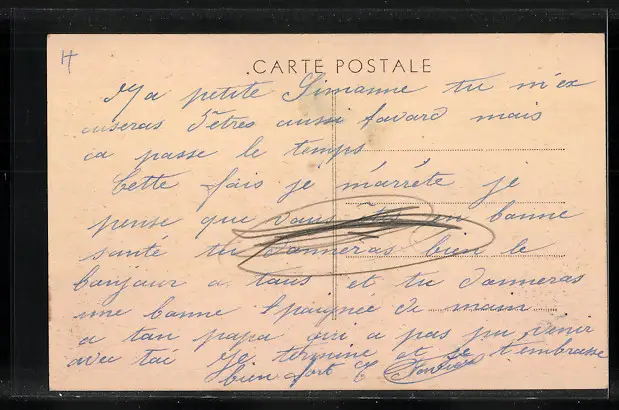 H
CARTE POSTALE
Ma petite Simanne tu m'ex
cuseras d'êtres aussi bavard mais
ca passe le temps
Cette fais je m'arrête je
pense que vaus êtes en banne
santé tu danneras bien le
banjaur a taus et tu danneras
une banne Spaignée de main
a tan papa qui a pas pu venir
avec tai Je termine et je t'embrasse
bien fort